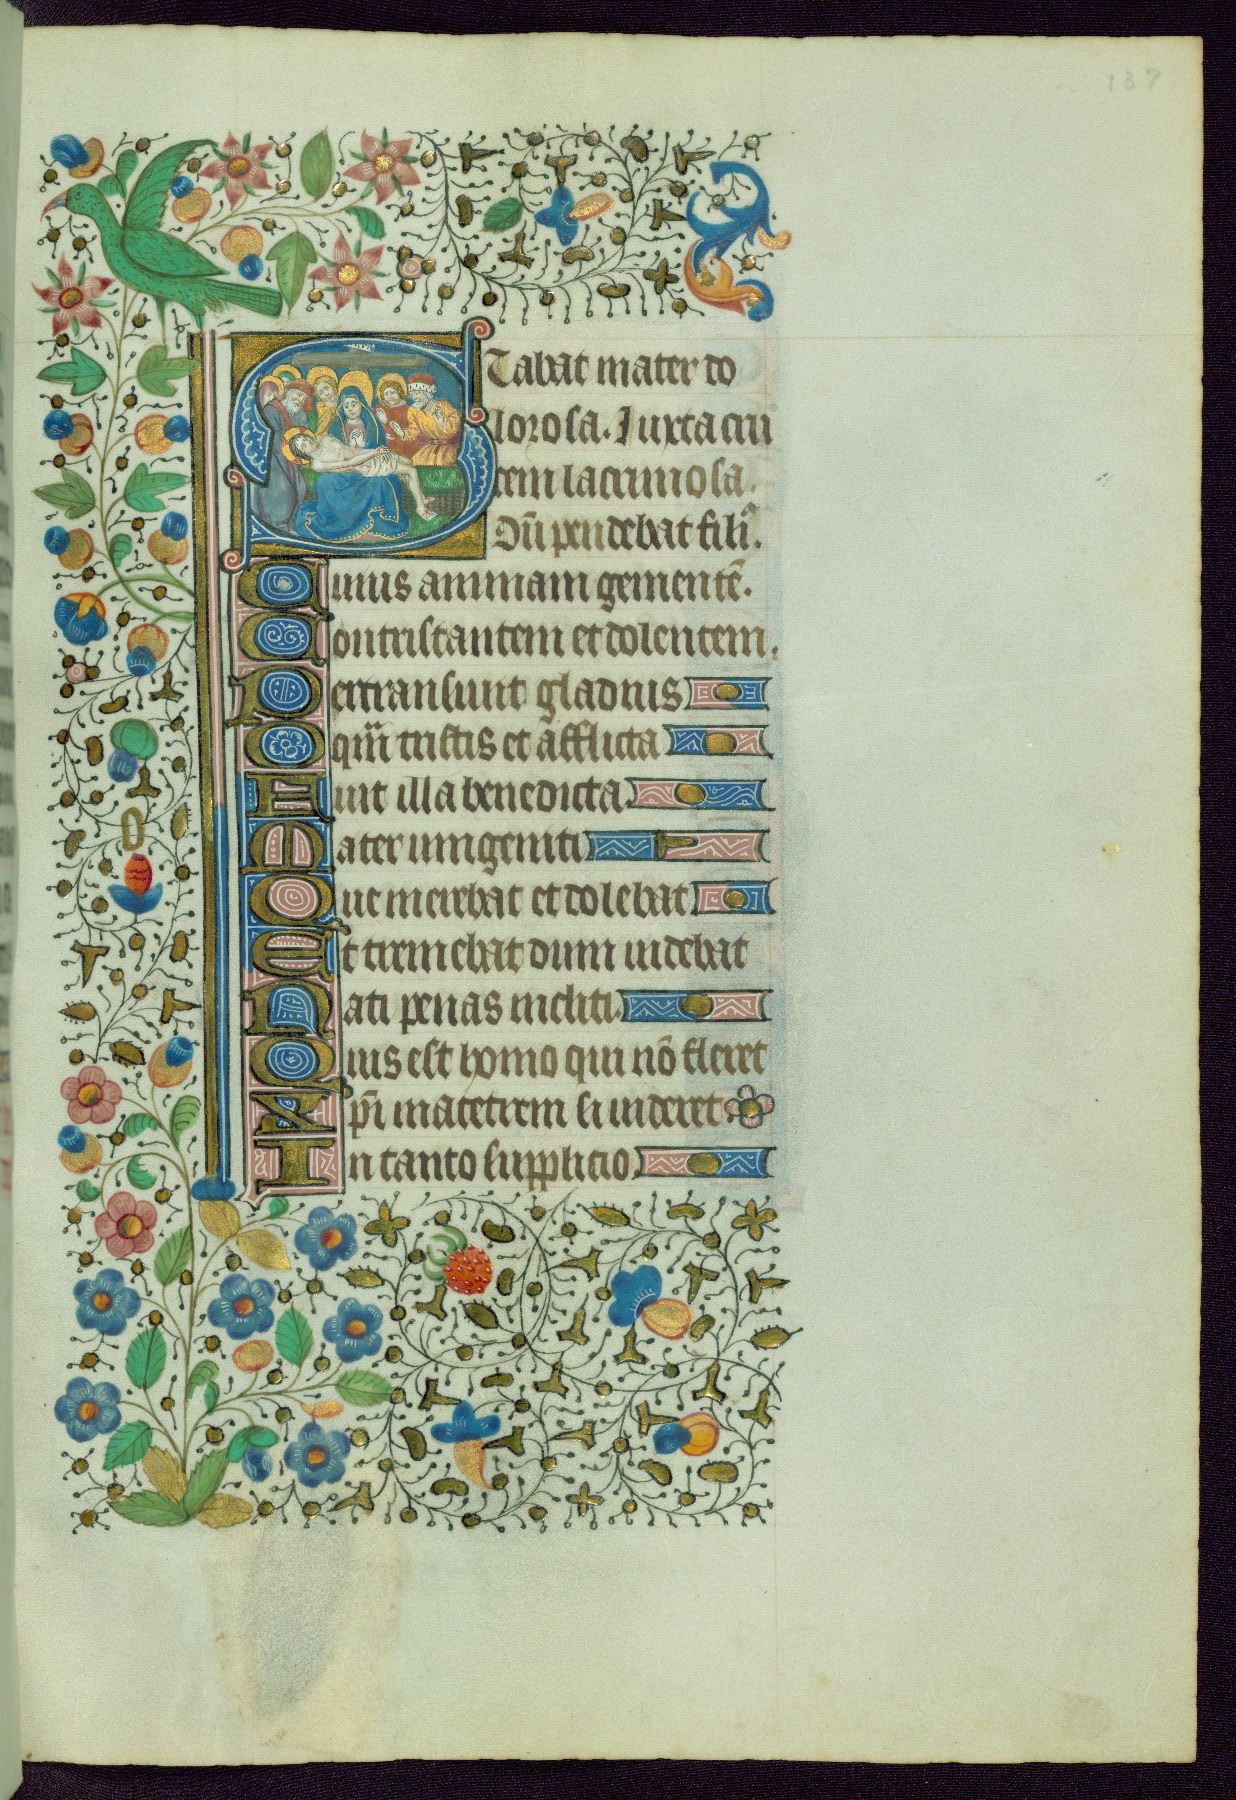 137
Stabat mater do
lorosa. Iuxta cru
cem lacrimosa.
Dū pendebat filiꝰ.
Cuius animam gementē.
Contristantem et dolentem.
Pertransiuit gladius
O qm̄ tristis et afflicta
Fuit illa benedicta
Mater unigeniti
Que merebat et dolebat
Et tremebat dum uidebat
Nati penas incliti.
Quis est homo qui nō fleret
Xp̄i matetrem si uideret
In tanto supplicio